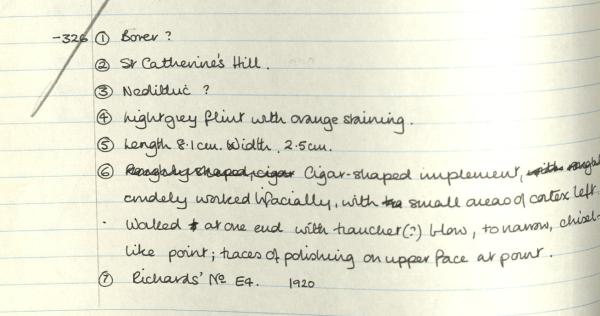 -326 ① Borer ?
② St Catherine's Hill.
③ Neolithic ?
④ Light grey flint with orange staining.
⑤ Length 8.1cm. Width 2.5cm.
⑥ Roughly shaped, cigar Cigar-shaped implement, with rough
crudely worked bifacially, with small areas of cortex left.
Worked at one end with tranchet(?) blow, to narrow, chisel-
like point; traces of polishing on upper face at point.
⑦ Richards' No E4. 1920